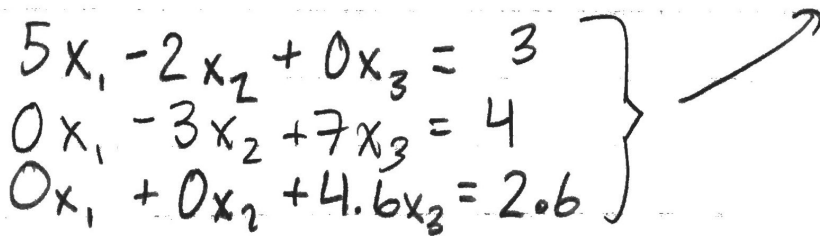 5x₁ - 2x₂ + 0x₃ = 3
0x₁ - 3x₂ + 7x₃ = 4
0x₁ + 0x₂ + 4.6x₃ = 2.6